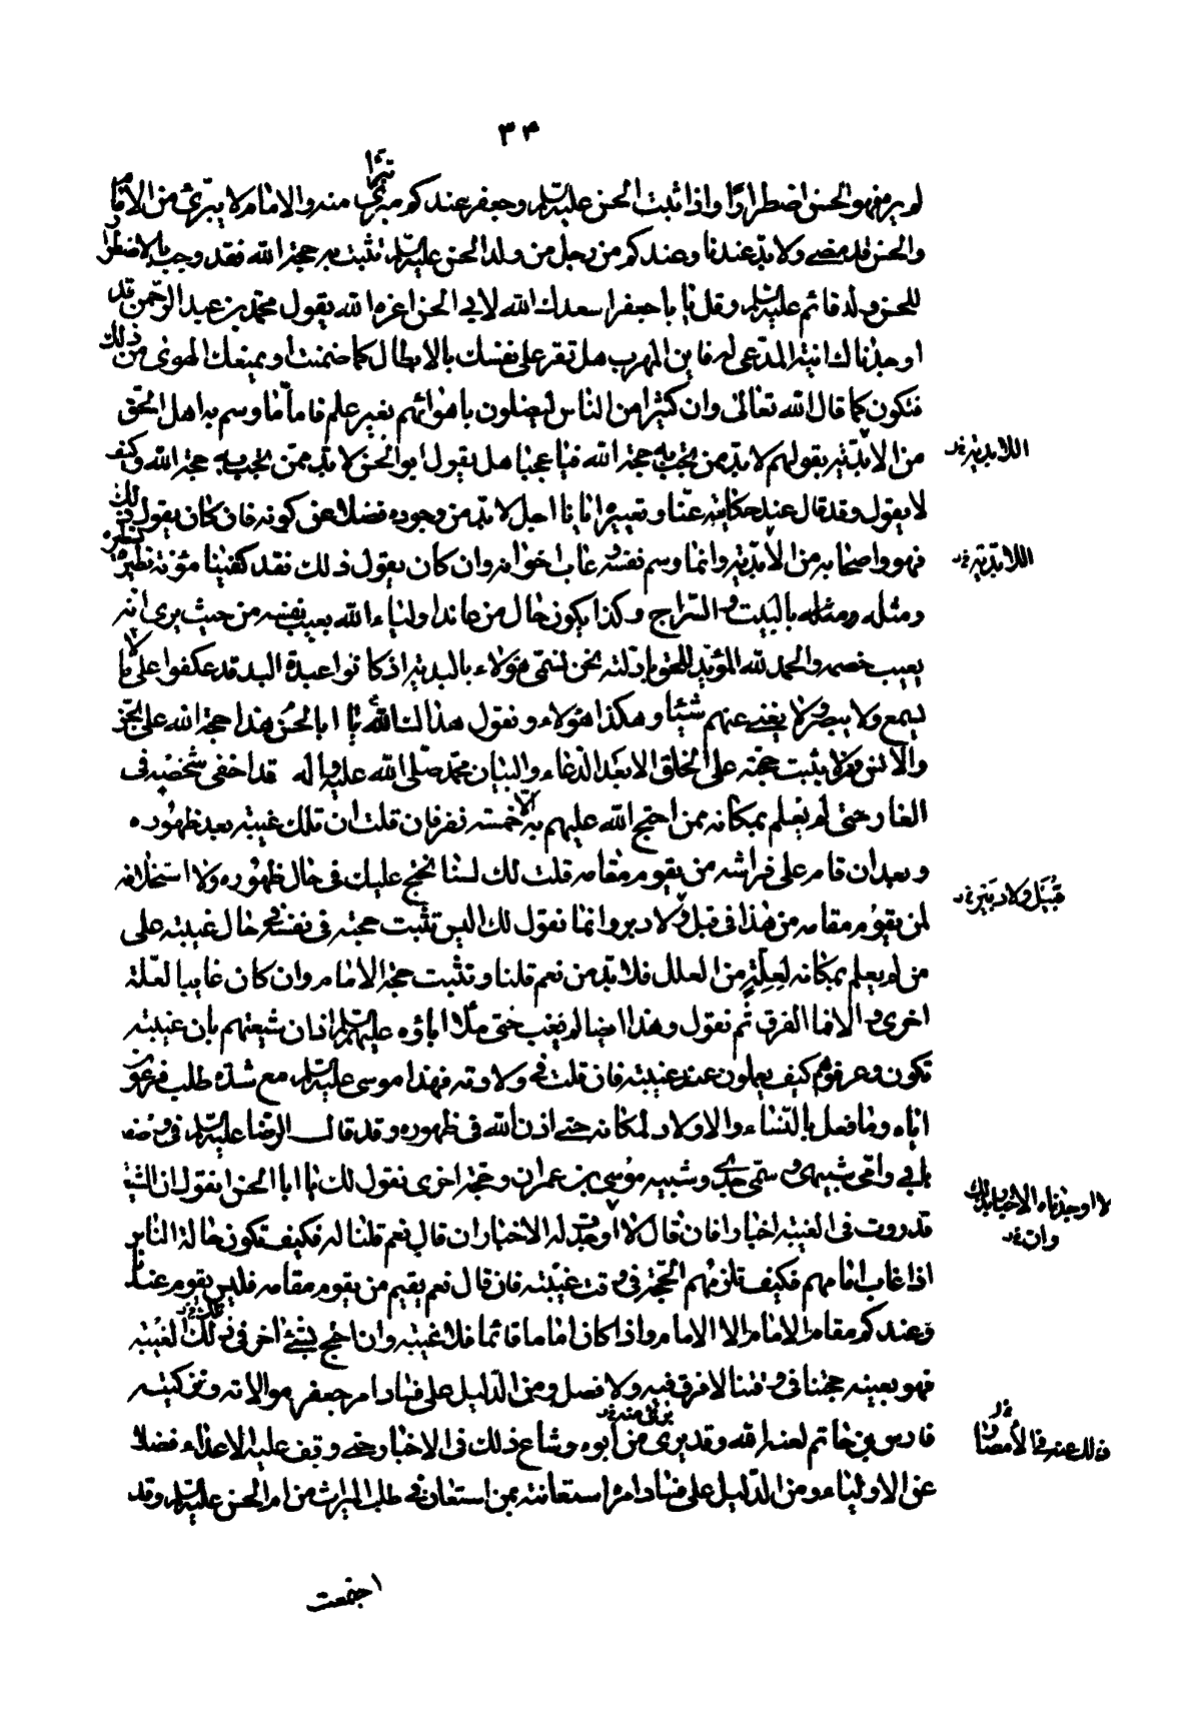 ٣۴
لم يبرء فهو الحسن اضطرارا واذا ثبت الحسن عليه السلم وجعفر عندكم مبرئ تبرأ منه والامام لا يتبرئ من الامام
والحسن قد مضى ولا بد عندنا وعندكم من رجل من ولد الحسن عليه السلم تثبت به حجة الله فقد وجب بالاضطرار
للحسن ولد قائم عليه السلم وقل يا با جعفر اسعدك الله لابى الحسن اعزه الله يقول محمد بن عبد الرحمن قد
اوجدناك انية المدعى له فاين المهرب هل تقر على نفسك بالابطال كما ضمنت او يمنعك الهوى من ذلك
فتكون كما قال الله تعالى وان كثيرا من الناس ليضلون باهوائهم بغير علم فاما ما وسم به اهل الحق
من الابدية بقولهم لا بد من تجب به حجة الله فيا عجبا هل يقول ابو الحسن لا بد ممن تجب به حجة الله وكيف
لا يقول وقد قال عند حكايته عنا وتعييره ايانا اجل لا بد من وجوده فضلا عن كونه فان كان يقول ذلك
فهو واصحابه من الابدية وانما وسم نفسه وعاب اخوانه وان كان يقول ذلك فقد كفينا مؤنة تنظيره
ومثله ومثله بالبيت والسراج وكذا يكون حال من عاند اولياء الله يعيب نفسه من حيث يرى انه
يعيب خصمه والحمد لله المؤيد للحق بادلته نحن نسمى هؤلاء بالبدية اذ كانوا عبدة البد قد عكفوا على ما لا
يسمع ولا يبصر ولا يغنى عنهم شيئا وهكذا هؤلاء ونقول هداك الله يا ابا الحسن هذا حجة الله على الجن
والانس ومن لا يثبت حجته على الخلق الا بعد الدعاء والبيان محمد صلى الله عليه واله قد اخفى شخصه فى
الغار حتى لم يعلم بمكانه ممن احتج الله عليهم به الا خمسة نفر فان قلت ان تلك غيبة بعد ظهوره
وبعد ان قام على فراشه من يقوم مقامه قلت لك لسنا نحتج عليك فى حال ظهوره ولا استخلافه
لمن يقوم مقامه من هذا فى قبل ولا دبر وانما نقول لك اليس تثبت حجته فى نفسه فى حال غيبته على
من لم يعلم بمكانه لعلة من العلل فلا بد من نعم قلنا وتثبت حجة الامام وان كان غايبا لعلة
اخرى والا فما الفرق ثم نقول وهذا ايضا لم يغب حتى ملا اباؤه عليهم السلم اذان شيعتهم بان غيبته
تكون وعرفوهم كيف يعملون عند غيبته فان قلت فى ولادته فهذا موسى عليه السلم مع شدة طلب فرعون
اياه وما فعل بالنساء والاولاد لمكانه حتى اذن الله فى ظهوره وقد قال الرضا عليه السلم فى وصفه
بابى وامى شبيهى وسمى جدى وشبيه موسى بن عمران وحجة اخرى نقول لك يا ابا الحسن اتقول ان الشيعة
قد روت فى الغيبة اخبارا فان قال لا اوجدنا له الاخبار وان قال نعم قلنا له فكيف تكون حالة الناس
اذا غاب امامهم فكيف تلزمهم الحجة فى وقت غيبته فان قال نعم يقيم من يقوم مقامه فليس يقوم عندنا
وعندكم مقام الامام الا الامام واذا كان امام قائما فلا غيبة وان احتج بشئ اخر فى تلك الغيبة
فهو بعينه حجتنا فى وقتنا لا فرق فيه ولا فصل ومن الدليل على فساد امر جعفر موالاته وتزكيته
فارس بن حاتم لعنه الله وقد برئ منه ابوه وشاع ذلك فى الاخبار حتى وقف عليه الاعداء فضلا
عن الاولياء ومن الدليل على فساد امره استعانته بمن استعان فى طلب الميراث من ام الحسن عليه السلم وقد
اجتمعت
اللابدية خ‌د
اللابدية خ‌د
قبل ولا دبر خ‌د
لا اوجدناه الاخبار بذلك
وان خ‌د
ذلك عنه فى الامصار خ‌د